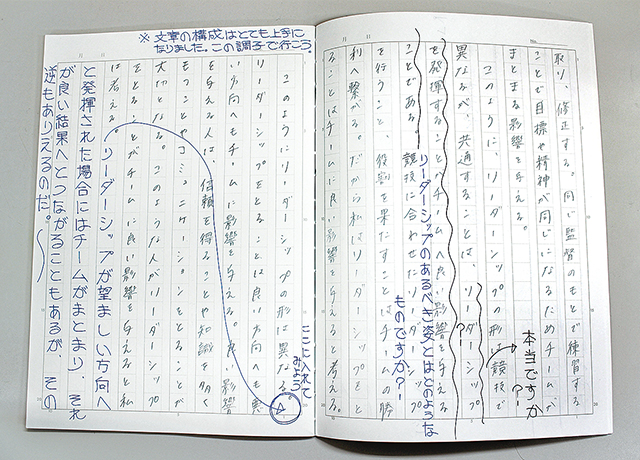 取り、修正する。同じ監督のもとで練習する
ことで目標や精神が同じになるためチームが
まとまる影響を与える。
このように、リーダーシップの形は競技で
異なるが、共通することは、リーダーシップ
を発揮することがチームへ良い影響を与える
ことである。
競技に合わせたリーダーシップ
を行うこと、役割を果たすことはチームの勝
利へ繋がる。だから私はリーダーシップをと
ることはチームに良い影響を与えると考える。
本当ですか?
?
リーダーシップのあるべき姿とはどのような
ものですか?!
※文章の構成はとても上手に
なりました。この調子で行こう。
このようにリーダーシップの形は異なる。
リーダーシップをとることは良い方向へも悪
い方向へもチームに影響を与える。良い影響
を与える人は、信頼を得ることや知識を多く
もつことやコミュニケーションをとることが
大切となる。このような人がリーダーシップ
をとることがチームに良い影響を与えると私
は考える。
ここに入れて
みよう
A
リーダーシップが望ましい方向へ
と発揮された場合にはチームがまとまり、それ
が良い結果へとつながることもあるが、その
逆もありえるのだ。